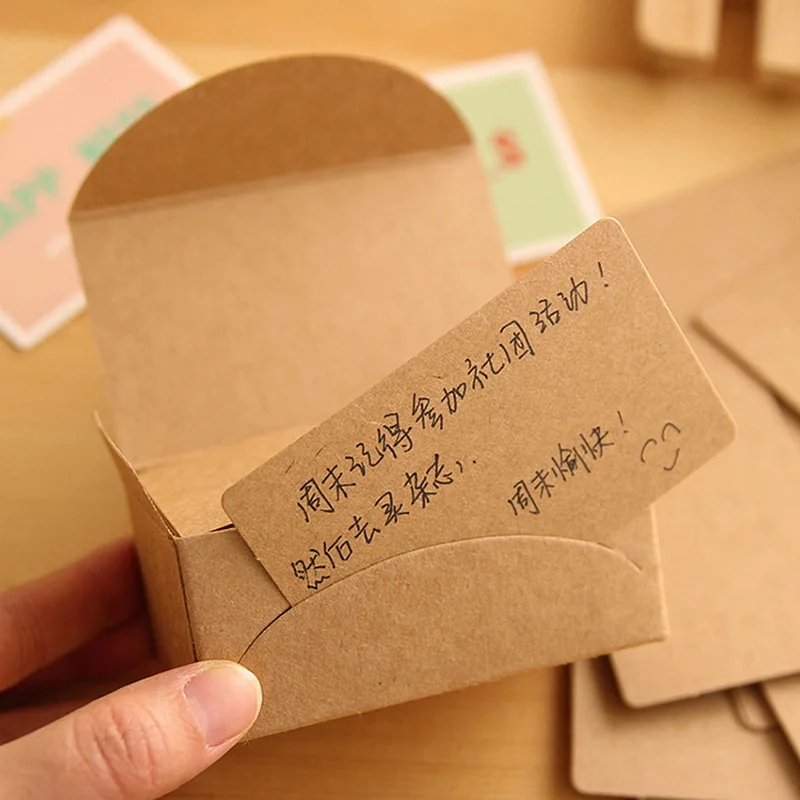 周末记得参加社团活动!
然后去买杂志).
周末愉快!